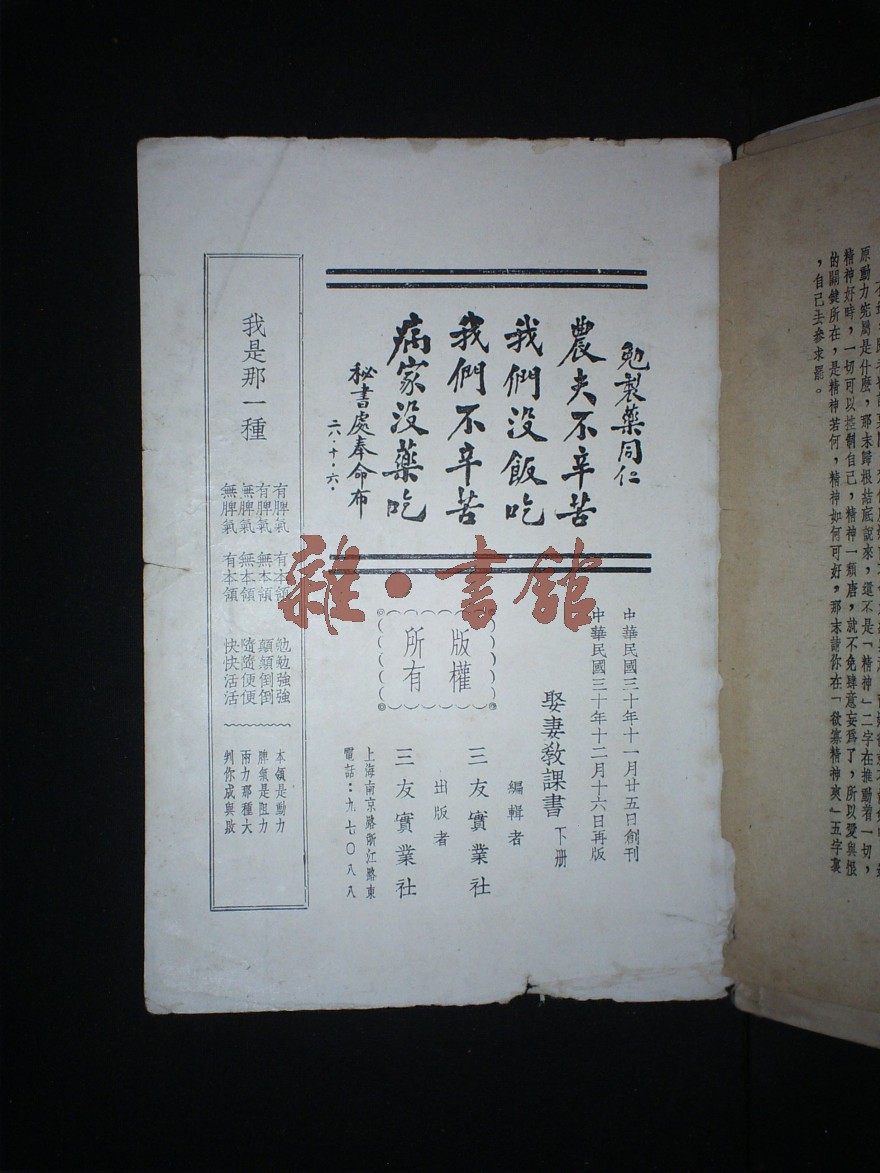 原動力究屬是什麼，那末歸根結底說來，還不是「精神」二字在推動着一切，
精神好時，一切可以控制自己，精神一頹唐，就不免肆意妄爲了，所以愛與恨
的關鍵所在，是精神若何，精神如何可好，那末請你在「欲精神爽」五字裏
，自己去參求罷。
勉製藥同仁
農夫不辛苦
我們沒飯吃
我們不辛苦
病家沒藥吃
秘書處奉命布
二八．十．六．
雜·書館
中華民國三十年十一月廿五日創刊
中華民國三十年十二月十六日再版
娶妻教課書 下册
編輯者 三友實業社
出版者 三友實業社
上海南京路浙江路東
電話：九七〇八八
版權
所有
我是那一種
有脾氣 有本領 勉勉強強
有脾氣 無本領 顛顛倒倒
無脾氣 無本領 隨隨便便
無脾氣 有本領 快快活活
本領是動力
脾氣是阻力
兩力那種大
判你成與敗